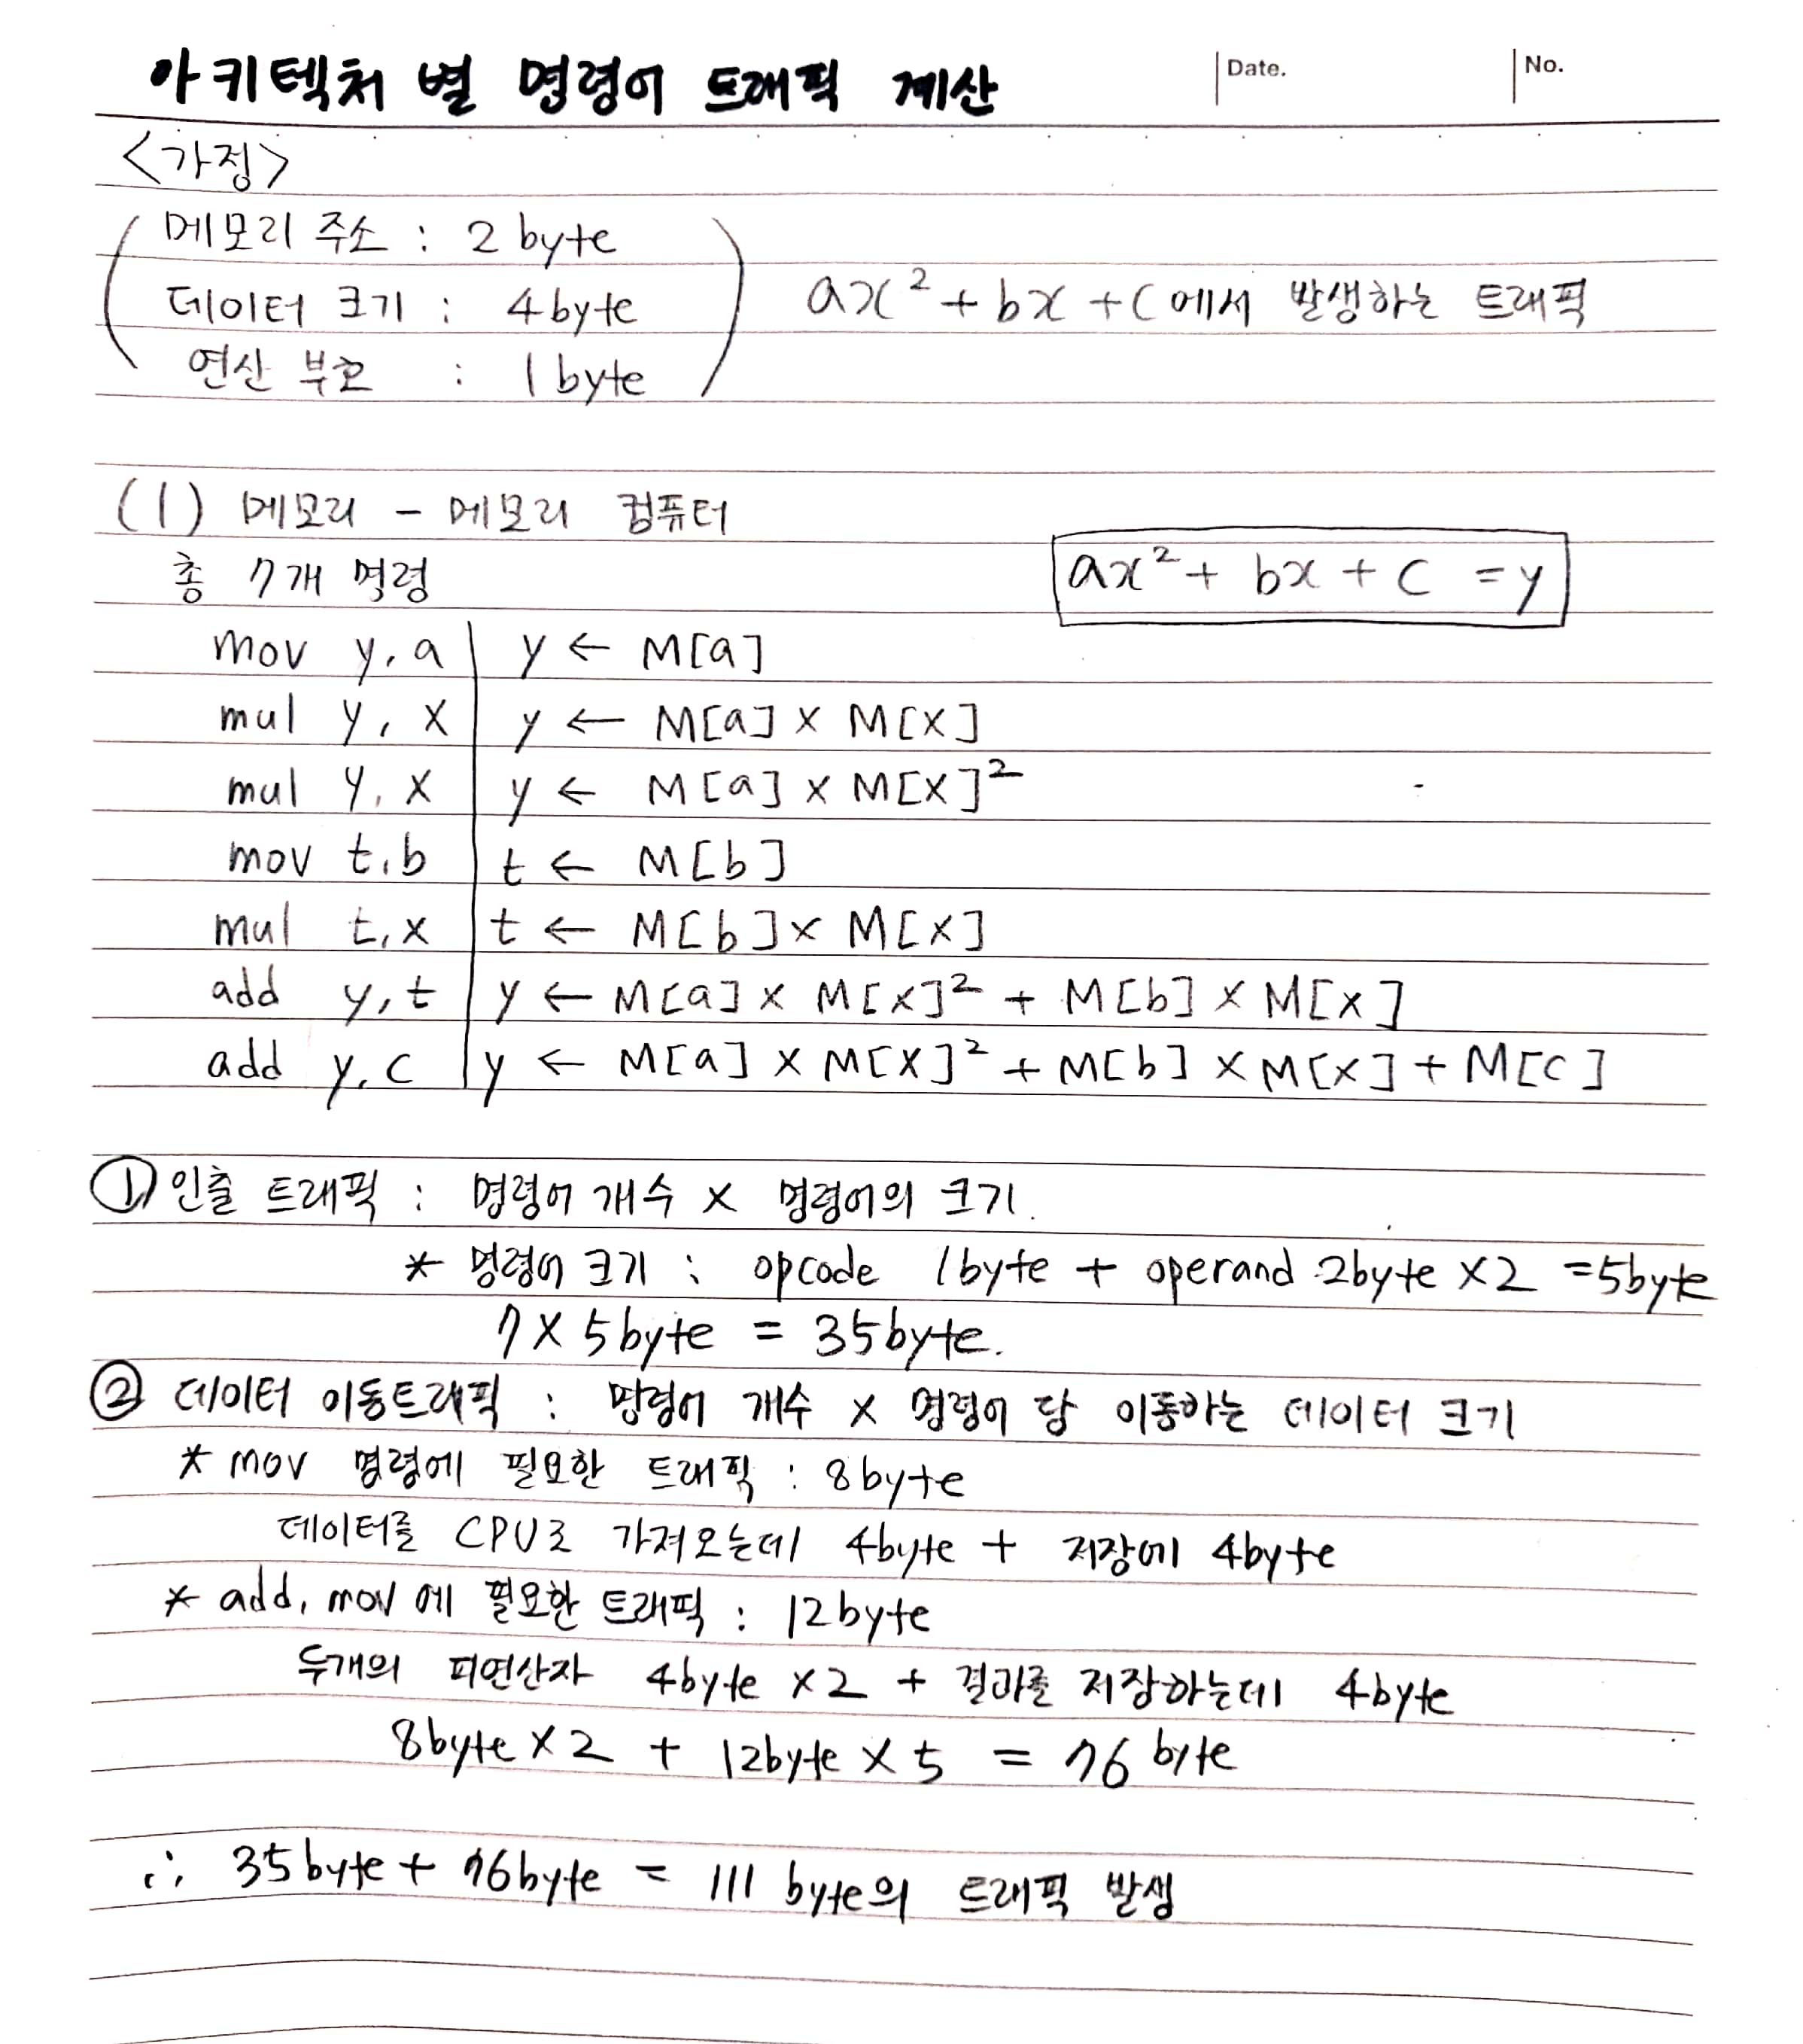 아키텍처 별 명령어 트래픽 계산
Date.
No.
<가정>
메모리 주소 : 2 byte
데이터 크기 : 4 byte
연산 부호 : 1 byte
ax² + bx + c 에서 발생하는 트래픽
(1) 메모리 - 메모리 컴퓨터
총 7개 명령
ax² + bx + c = y
mov y, a | y ← M[a]
mul y, x | y ← M[a] × M[x]
mul y, x | y ← M[a] × M[x]²
mov t, b | t ← M[b]
mul t, x | t ← M[b] × M[x]
add y, t | y ← M[a] × M[x]² + M[b] × M[x]
add y, c | y ← M[a] × M[x]² + M[b] × M[x] + M[c]
① 인출 트래픽 : 명령어 개수 × 명령어의 크기.
* 명령어 크기 : opcode 1byte + operand 2byte × 2 = 5byte
7 × 5 byte = 35 byte.
② 데이터 이동트래픽 : 명령어 개수 × 명령어 당 이동하는 데이터 크기
* mov 명령에 필요한 트래픽 : 8 byte
데이터를 CPU로 가져오는데 4byte + 저장에 4byte
* add, mov 에 필요한 트래픽 : 12 byte
두개의 피연산자 4byte × 2 + 결과를 저장하는데 4byte
8byte × 2 + 12byte × 5 = 76 byte
∴ 35 byte + 76 byte = 111 byte의 트래픽 발생